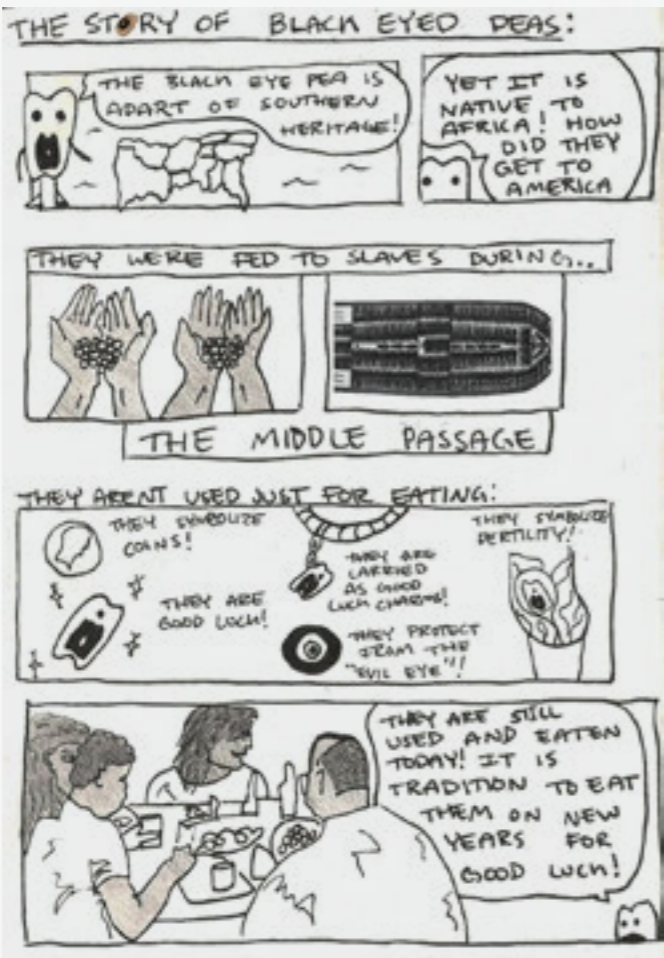 THE STORY OF BLACK EYED PEAS:
THE BLACK EYE PEA IS
APART OF SOUTHERN
HERITAGE!
YET IT IS
NATIVE TO
AFRICA! HOW
DID THEY
GET TO
AMERICA
THEY WERE FED TO SLAVES DURING...
THE MIDDLE PASSAGE
THEY ARENT USED JUST FOR EATING:
THEY SYMBOLIZE
COINS!
THEY ARE
GOOD LUCK!
THEY ARE
CARRIED
AS GOOD
LUCK CHARMS!
THEY PROTECT
FROM THE
"EVIL EYE"!
THEY SYMBOLIZE
FERTILITY!
THEY ARE STILL
USED AND EATEN
TODAY! IT IS
TRADITION TO EAT
THEM ON NEW
YEARS FOR
GOOD LUCK!